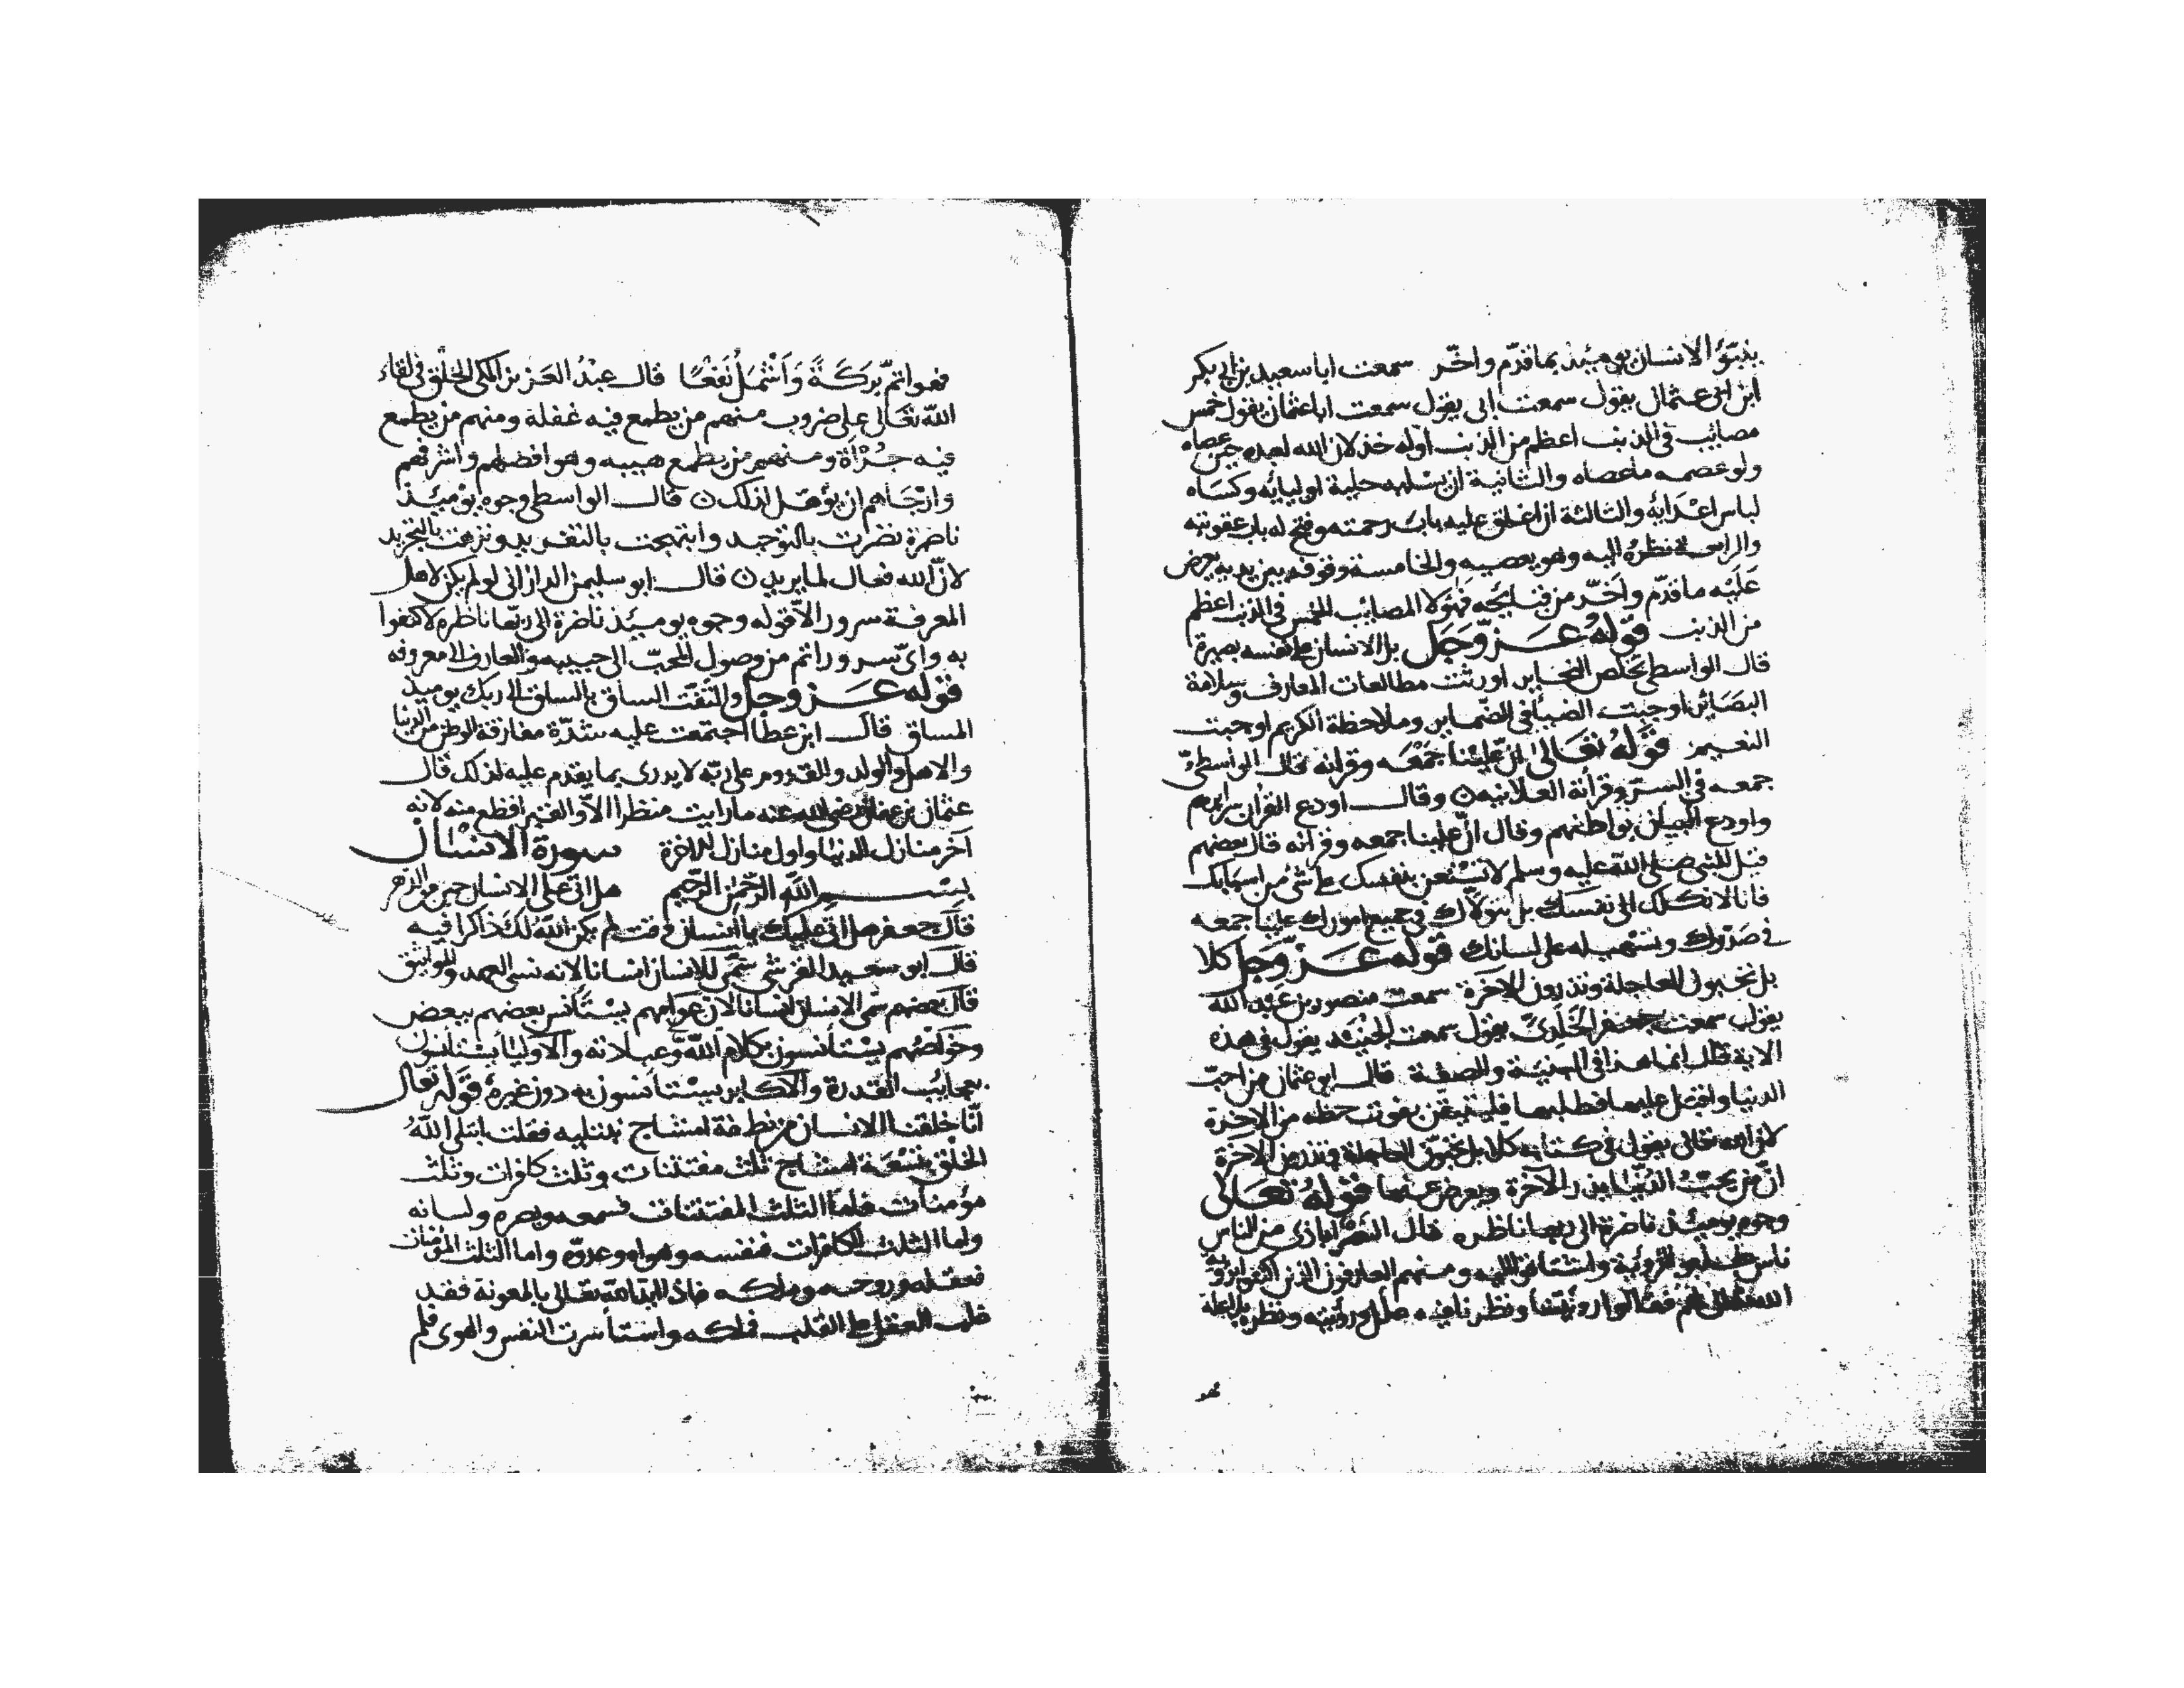 ينبّؤ الانسان يومئذ بما قدّم واخّر سمعت ابا سعيد بن ابي بكر
ابن ابي عثمان يقول سمعت ابي يقول سمعت ابا عثمان يقول خمس
مصائب في الذنب اعظم من الذنب اوله خذلان الله لعبده حين عصاه
ولو عصمه ما عصاه والثانية ان سلبه حلية اوليائه وكساه
لباس اعدائه والثالثة ان اغلق عليه باب رحمته وفتح له باب عقوبته
والرابعة نظره اليه وهو يعصيه والخامسة وقوفه بين يديه يعرض
عليه ما قدّم واخّر من قبائحه فهؤلا المصائب الخمس في الذنب اعظم
من الذنب قوله عز وجل بل الانسان على نفسه بصيرة
قال الواسطي تخلص الضماير اورثت مطالعات المعارف وسلامة
البصائر اوجبت الضيا في الضماير وملاحظة الكريم اوجبت
النعيم قوله تعالى ان علينا جمعه وقرانه قال الواسطي
جمعه في السر وقرأنه العلانيه ن وقال اودع القرآن
واودع البيان بواطنهم وقال ان علينا جمعه وقرانه قال بعضهم
قيل للنبي صلى الله عليه وسلم لا تستعن بنفسك على شئ من اسبابك
فانا لا نكلك الى نفسك بل نتولاك في جميع امورك علينا جمعه
في صدرك وتسهيله على لسانك قوله عز وجل كلا
بل تحبون العاجلة وتذرون الآخرة سمعت منصور بن عبد الله
يقول سمعت جعفر الخلدي يقول سمعت الجنيد يقول في هذه
الاية قال انما هذا في والصفة قال ابو عثمان من احب
الدنيا واقبل عليها فطلبها فليتيقن بفوت حظه من الآخرة
لان الله تعالى يقول في كتابه كلا بل تحبون العاجلة وتذرون الآخرة
ان من يحب الدنيا يذر الآخرة ويعرض عنها قوله تعالى
وجوه يومئذ ناضرة الى ربها ناظره قال النصراباذي من الناس
ناس طلبوا الرؤية واشتاقوا اليه ومنهم العارفون الذين اكتفوا برؤية
الله لهم فقالوا رؤيتنا ونظرنا فيه علل ورؤيته ونظره بلا علة
فهو اتم بركة واشمل نفعا قال عبد العزيز المكي الخلق في لقاء
الله تعالى على ضروب منهم من يطمع فيه غفلة ومنهم من يطمع
فيه جرأة ومنهم من يطمع هيبه وهو افضلهم واشرفهم
وارجاهم ان يؤهل لذلك ن قال الواسطي وجوه يومئذ
ناضرة نضرت بالتوحيد وابتهجت بالتفريد ونزهت بالتجريد
لان الله فعال لما يريد ن قال ابو سليمن الداراني لو لم يكن لاهل
المعرفة سرور الا قوله وجوه يومئذ ناضرة الى ربها ناظره لاكتفوا
به واي سرور اتم من وصول المحب الى حبيبه والعارف الى معروفه
قوله عز وجل والتفت الساق بالساق الى ربك يوميذ
المساق قال ابن عطا اجتمعت عليه شدّة مفارقة الوطن من الدنيا
والاهل والولد والقدوم على ربّه لا يدرى بما يقدم عليه لذلك قال
عثمان بن عفان رضى الله عنه ما رايت منظرا الا والقبر افظع منه لانه
آخر منازل الدنيا واول منازل الاخرة سورة الانسان
بسم الله الرحمن الرحيم هل اتى على الانسان حين من الدهر
قال جعفر هل اتى عليك يا انسان وقت لم يكن الله لك ذاكرا فيه
قال ابو سعيد القرشي سمّي الانسان انسانا لانه نسى العهد والمواثيق
قال بعضهم سمى الانسان انسانا لان عوامهم يستأنس بعضهم ببعض
وخواصهم يستأنسون بكلام الله وعبادته والاوليا يستأنسون
بعجائب القدرة والاكابر يستأنسون به دون غيره قوله تعالى
انّا خلقنا الانسان من نطفة امشاج نبتليه فقلت ابتلى الله
الخلق بتسعة امشاج ثلث مفتنات وثلث كافرات وثلث
مؤمنات فاما الثلث المفتنات فسمعه وبصره ولسانه
واما الثلث الكافرات فنفسه وهواه وعدوّه واما الثلث المؤمنات
فعقله وروحه وملكه فاذا ايد الله تعالى بالمعونة فقد
غلب العقل على القلب فملكه واستأسرت النفس والهوى فلم